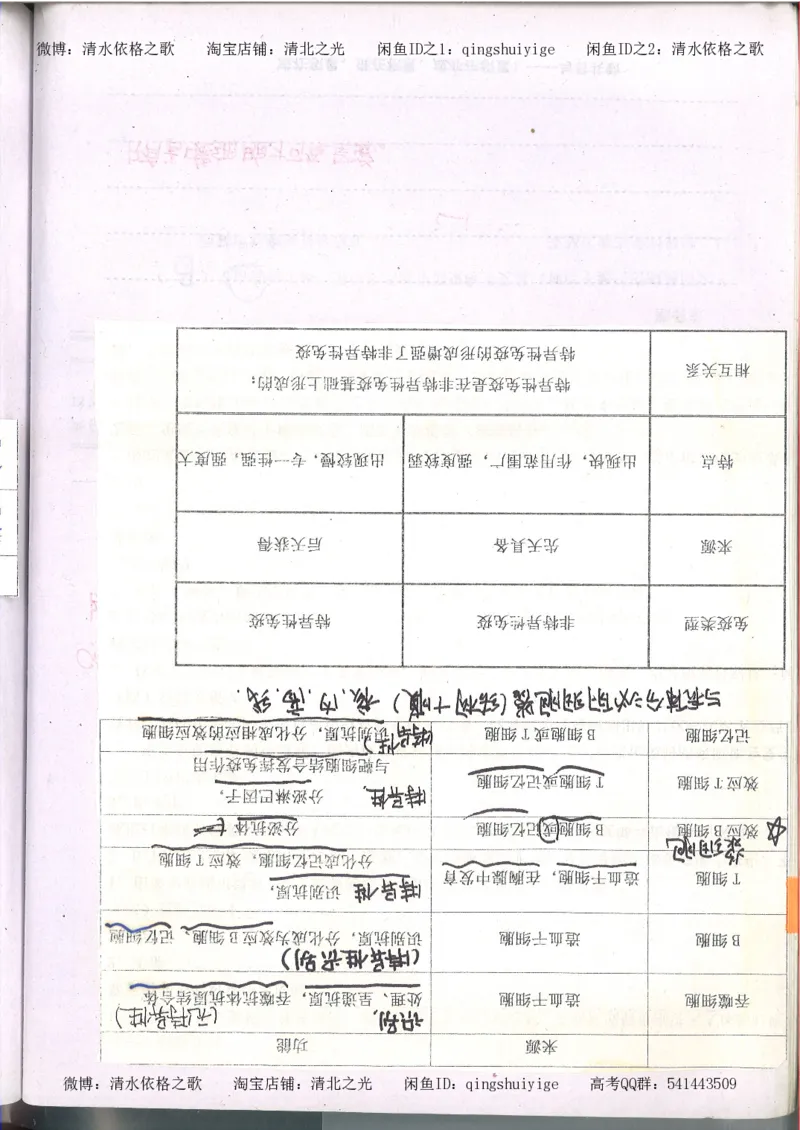 微博：清水依格之歌 淘宝店铺：清北之光 闲鱼ID之1：qingshuiyige 闲鱼ID之2：清水依格之歌
来源 功能
吞噬细胞 造血干细胞 识别、处理、呈递抗原，吞噬抗体抗原结合体 (无特异性)
B 细胞 造血干细胞 识别抗原，分化成为效应 B 细胞、记忆细胞 (特异性识别)
T 细胞 造血干细胞，在胸腺中发育 特异性 识别抗原，
分化成记忆细胞，效应 T 细胞
效应 B 细胞 浆细胞 B 细胞或记忆细胞 分泌抗体
效应 T 细胞 T 细胞或记忆细胞 特异性 分泌淋巴因子，
与靶细胞结合发挥免疫作用
记忆细胞 B 细胞或 T 细胞 (特异性) 识别抗原，分化成相应的效应细胞
与抗体分泌有关的细胞器(结构+膜) 核、内、高、线
免疫类型 非特异性免疫 特异性免疫
来源 先天具备 后天获得
特点 出现快，作用范围广，强度较弱 出现较慢，专一性强，强度大
相互关系 特异性免疫是在非特异性免疫基础上形成的；
特异性免疫的形成增强了非特异性免疫
微博：清水依格之歌 淘宝店铺：清北之光 闲鱼ID：qingshuiyige 高考QQ群：541443509